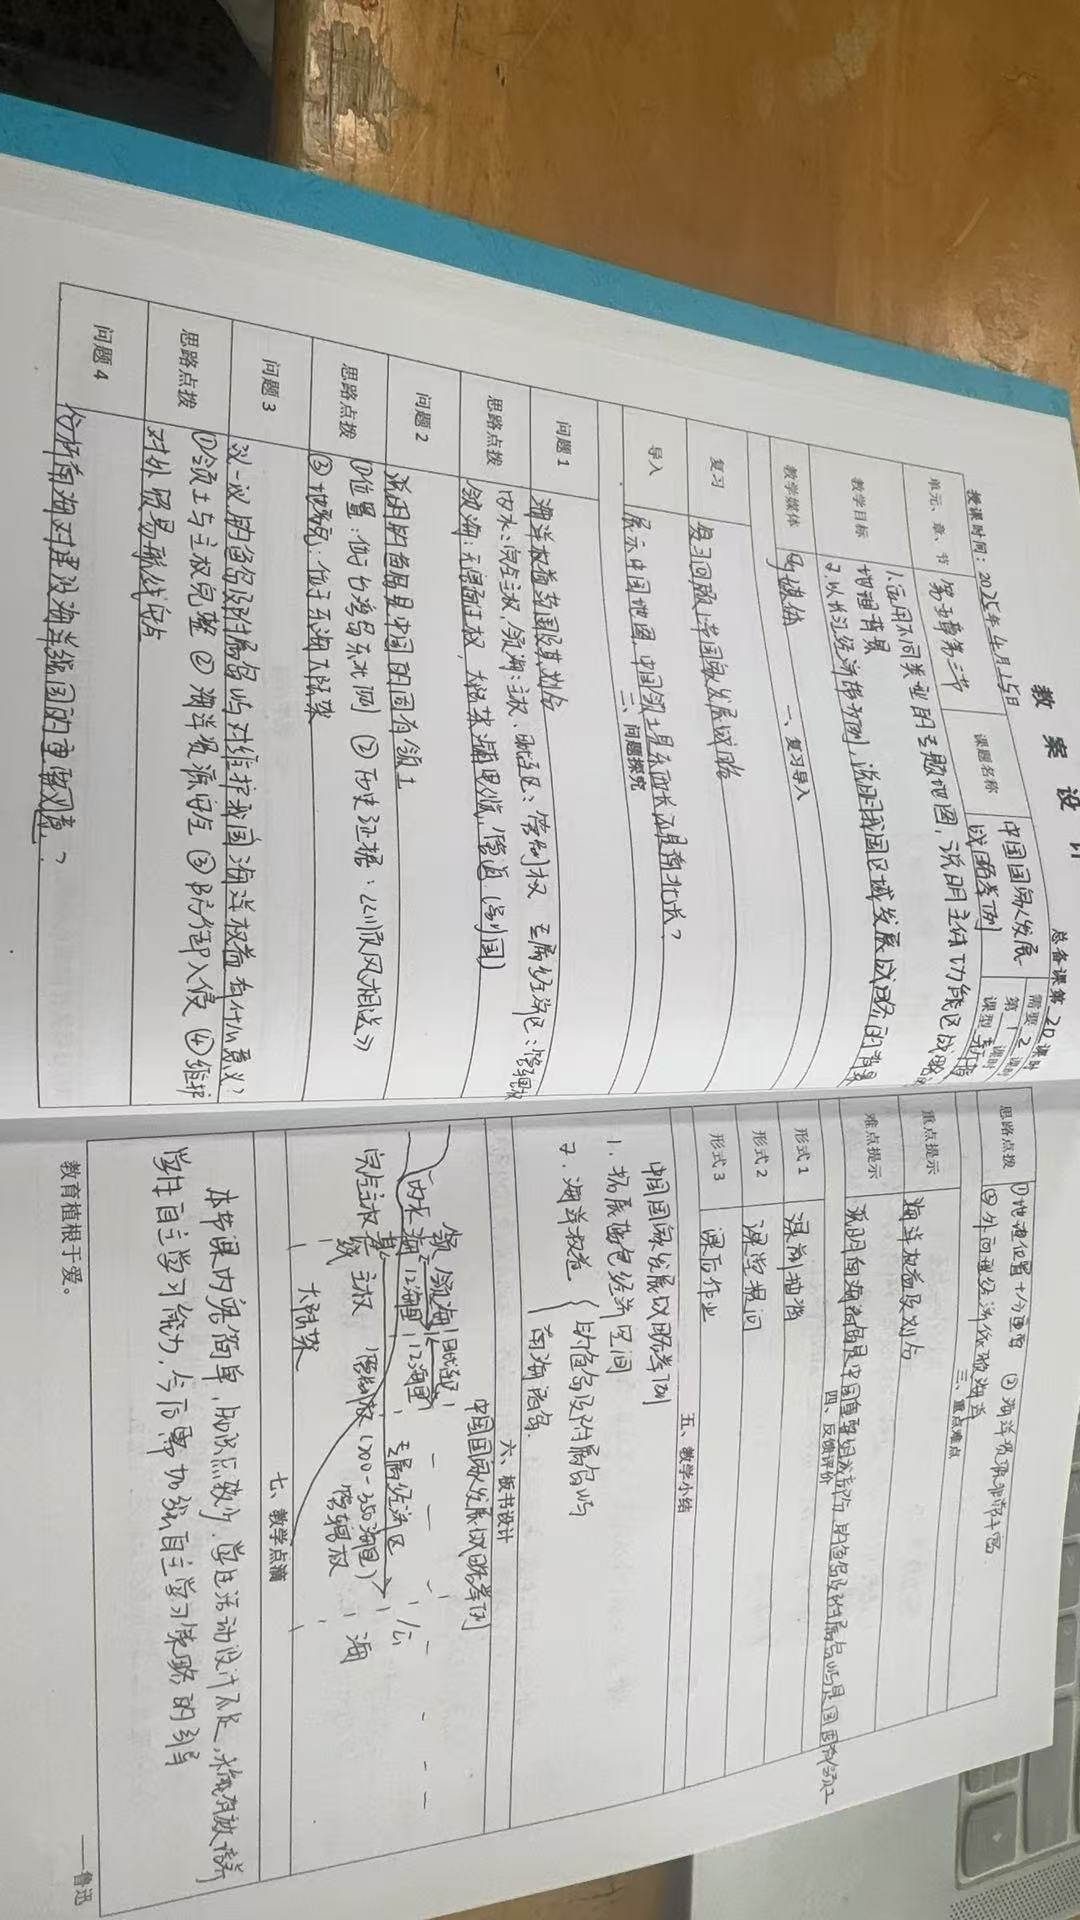 教案设计
总备课第 20 课时
授课时间：2025年4月15日
需要 2 课时
第 1 课时
单元、章、节 第五章第三节 课题名称 中国国家发展战略举例 课型 新授
教学目标 1.运用不同类型的专题地图，说明主体功能区战略
地理背景
2.以长江经济带为例，说明我国区域发展战略的背景
教学媒体 多媒体
一、复习导入
复习 复习回顾上节国家发展战略
导入 展示中国地图，中国领土是东西长还是南北长？
二、问题探究
问题 1 海洋权益范围及其划分
思路点拨 内水：完全主权，领海：主权：毗连区：管制权 专属经济区：管辖权
领海：无害通过权，大陆架：铺电缆，管道（别国）
问题 2 说明钓鱼岛是中国的固有领土
思路点拨 ①位置：位于台湾岛东北侧 ②历史证据：《顺风相送》
③地质：位于东海大陆架
问题 3 议一议 钓鱼岛及附属岛屿对维护我国海洋权益有什么意义？
思路点拨 ①领土与主权完整 ②海洋资源安全 ③防御入侵 ④维护
对外贸易航线安全
问题 4 分析南海对建设海洋强国的重要意义？
思路点拨 ①地理位置十分重要 ②海洋资源非常丰富
③外向型经济依赖海运
三、重点难点
重点提示 海洋权益及划分
难点提示 说明南海诸岛是中国重要组成部分，钓鱼岛及附属岛屿是固有领土
四、反馈评价
形式 1 课前抽查
形式 2 课堂提问
形式 3 课后作业
五、教学小结
中国国家发展战略举例
1. 拓展蓝色经济空间
2. 海洋权益 { 钓鱼岛及附属岛屿
南海诸岛
六、板书设计
中国国家发展战略举例
领海 毗连区
内水 12海里 12海里 专属经济区 公海
完全主权 基线 主权 管制权 (200-350海里)
管辖权
大陆架
七、教学点滴
本节课内容简单，知识点较少，学生活动设计不足，未能有效培养
学生自主学习能力，今后需加强自主学习策略的引导
教育植根于爱。
——鲁迅